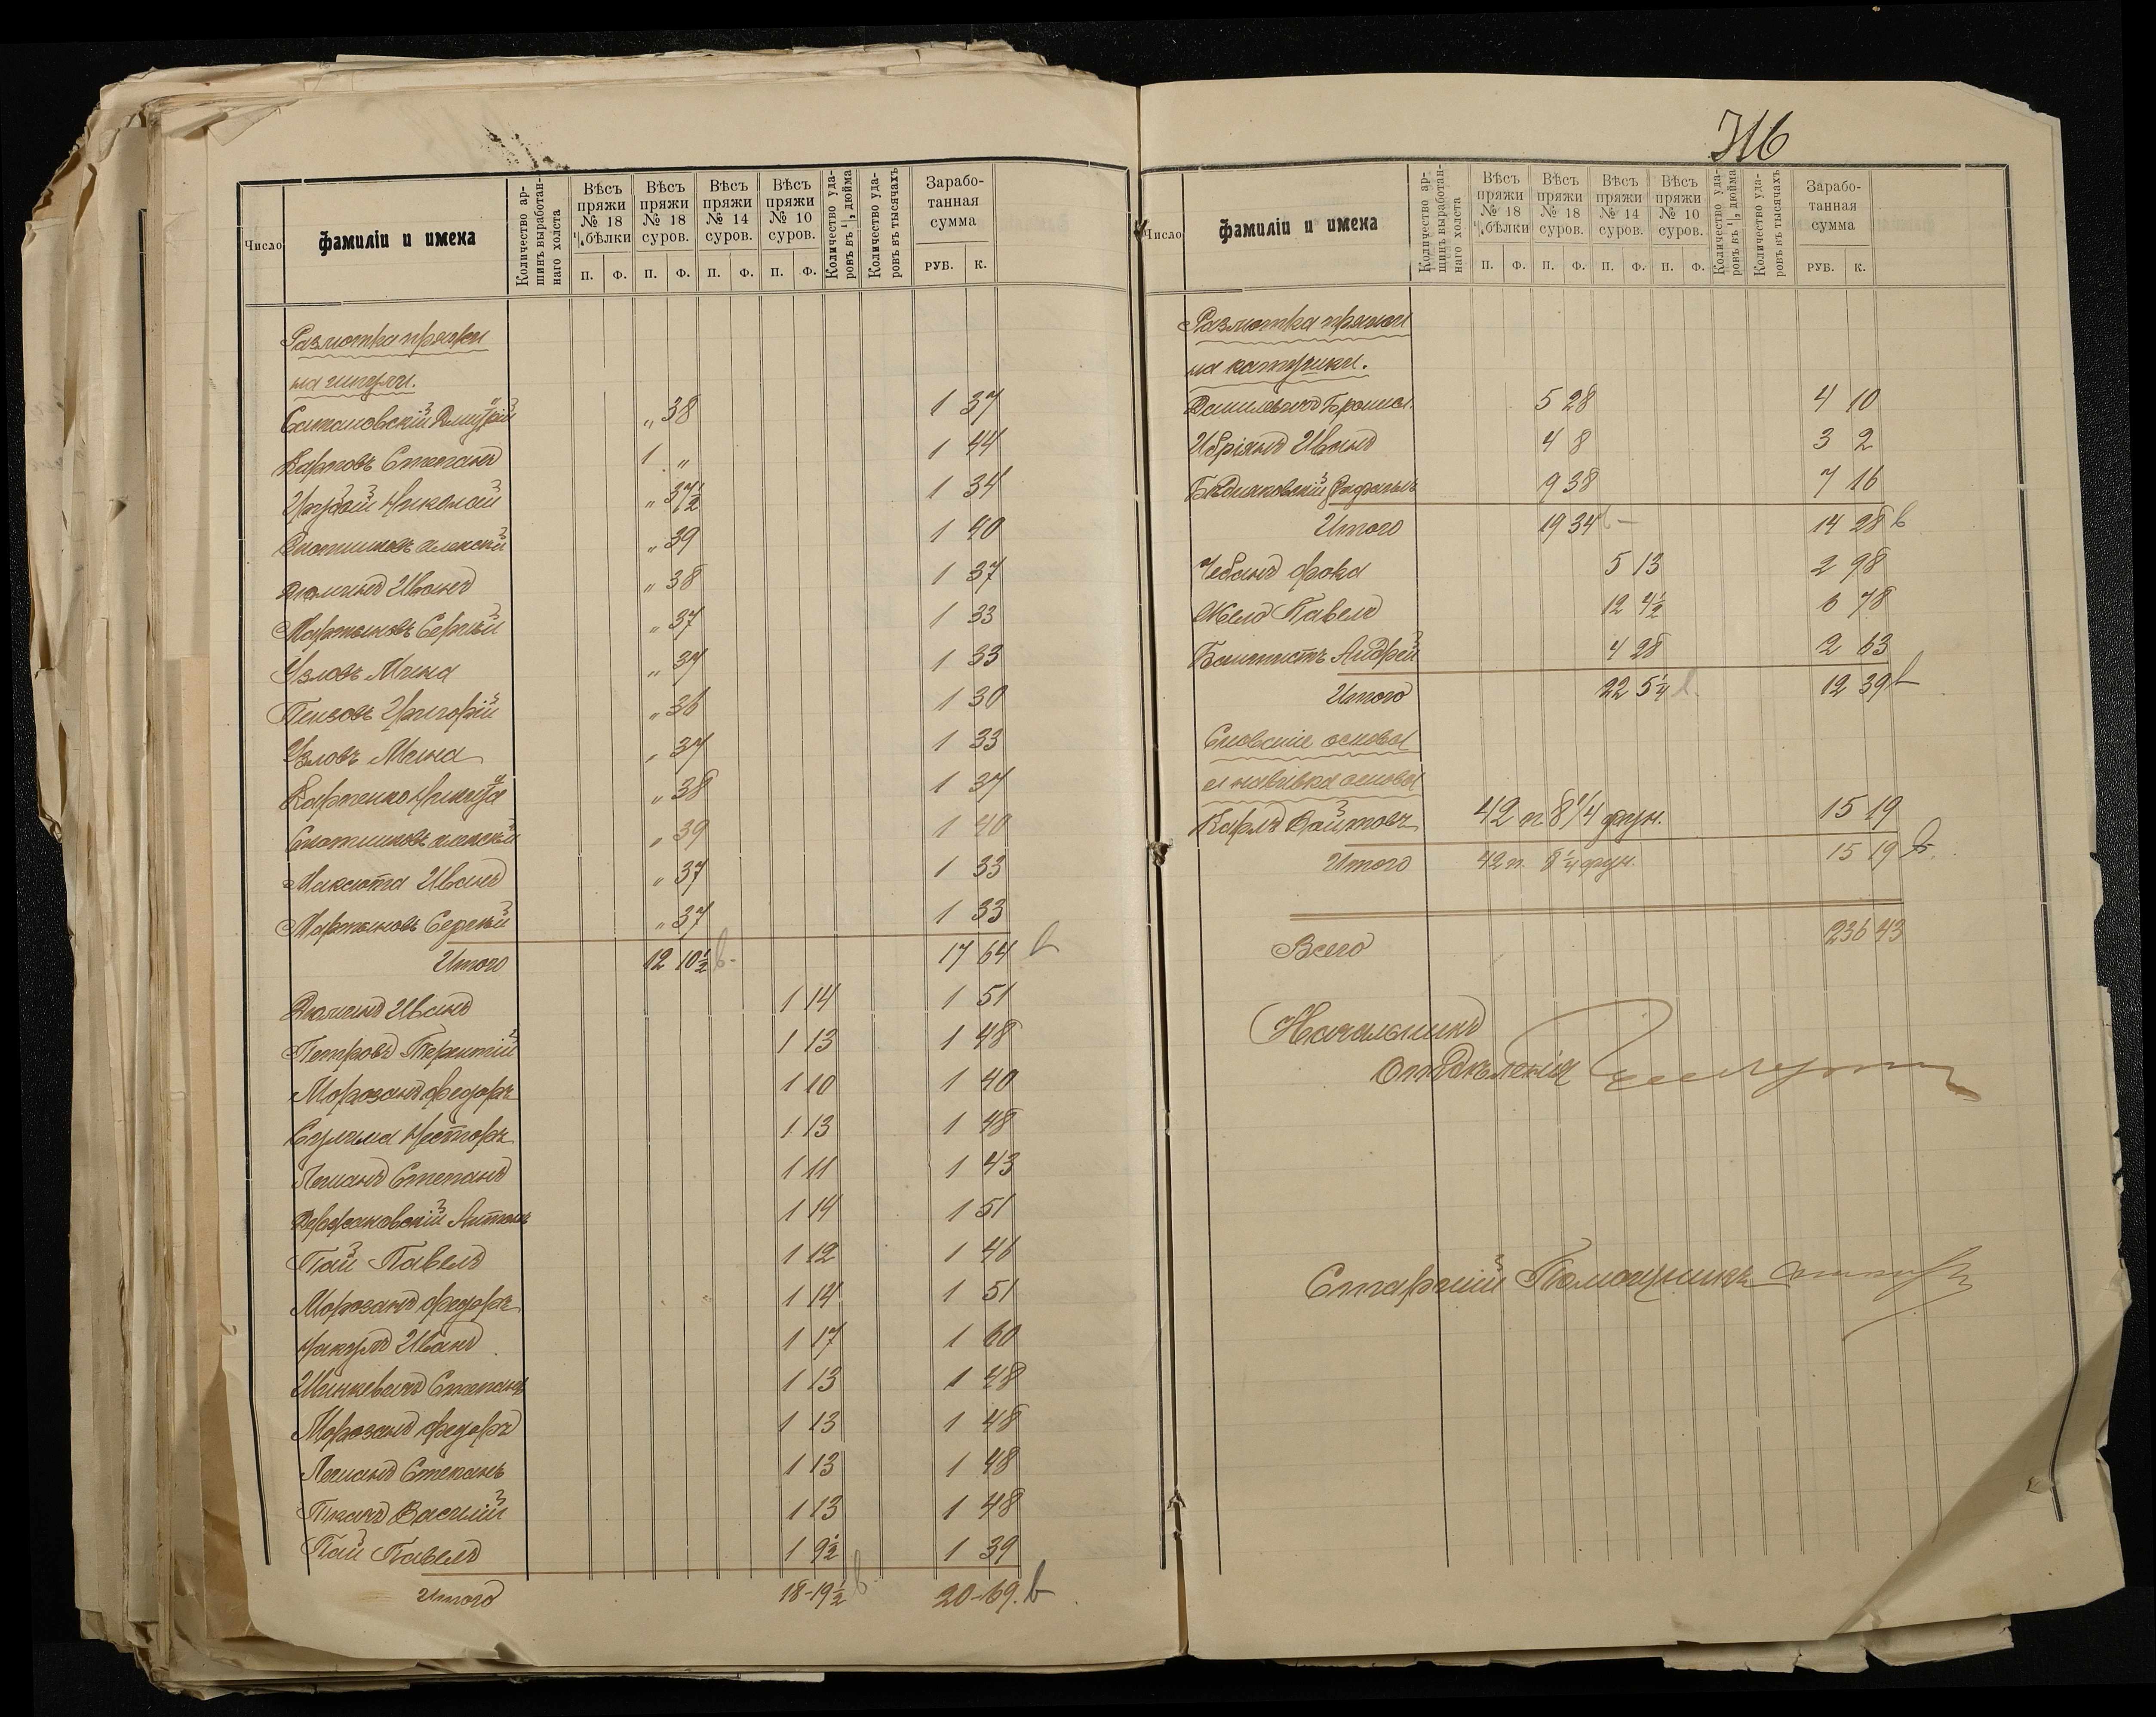 Число
фамиліи и имена
Количество аршинъ выработаннаго холста
Вѣсъ пряжи № 18 ¹/₄ бѣлки
Вѣсъ пряжи № 18 суров.
Вѣсъ пряжи № 14 суров.
Вѣсъ пряжи № 10 суров.
Количество ударовъ въ ¹/₂ дюйма
Количество ударовъ въ тысячахъ
Заработанная сумма
П. Ф. П. Ф. П. Ф. П. Ф. РУБ. К.
Размотка пряжи
на шпули.
Дмитрій „ 38 1 37
Карповъ Степанъ 1 „ 1 44
Николай „ 37½ 1 34
Алексѣй „ 39 1 40
Иванъ „ 38 1 37
Мартыновъ Сергѣй „ 37 1 33
Узловъ Мина „ 37 1 33
Пензовъ Григорій „ 36 1 30
Узловъ Мина „ 37 1 33
Карпенко Никита „ 38 1 37
Алексѣй „ 39 1 40
Максюта Иванъ „ 37 1 33
Мартыновъ Сергѣй „ 37 1 33
Итого 12 10½ 17 64
Иванъ 1 14 1 51
Петровъ Терентій 1 13 1 48
Морозанъ Федоръ 1 10 1 40
Сулима Несторъ 1 13 1 48
Лешанъ Степанъ 1 11 1 43
Антонъ 1 14 1 51
Пай Павелъ 1 12 1 46
Морозанъ Федоръ 1 14 1 51
Иванъ 1 17 1 60
Степанъ 1 13 1 48
Морозанъ Федоръ 1 13 1 48
Лешанъ Степанъ 1 13 1 48
Ткачъ Василій 1 13 1 48
Пай Павелъ 1 9½ 1 39
Итого 18-19½ 20-69.
316
Число
фамиліи и имена
Количество аршинъ выработаннаго холста
Вѣсъ пряжи № 18 ¹/₄ бѣлки
Вѣсъ пряжи № 18 суров.
Вѣсъ пряжи № 14 суров.
Вѣсъ пряжи № 10 суров.
Количество ударовъ въ ¹/₂ дюйма
Количество ударовъ въ тысячахъ
Заработанная сумма
П. Ф. П. Ф. П. Ф. П. Ф. РУБ. К.
Размотка пряжи
на катушки.
5 28 4 10
Иванъ 4 8 3 2
9 38 7 16
Итого 19 34 14 28
Чебанъ Фока 5 13 2 98
Жело Павелъ 12 4½ 6 78
Баптистъ Андрей 4 28 2 63
Итого 22 5¼ 12 39
Снованіе основы
и навивка основы
Карлъ 42 п. 8 1/4 фун. 15 19
Итого 42 п. 8 ¼ фун. 15 19
Всего 236 43
Начальникъ
Отдѣленія
Старшій Помощникъ